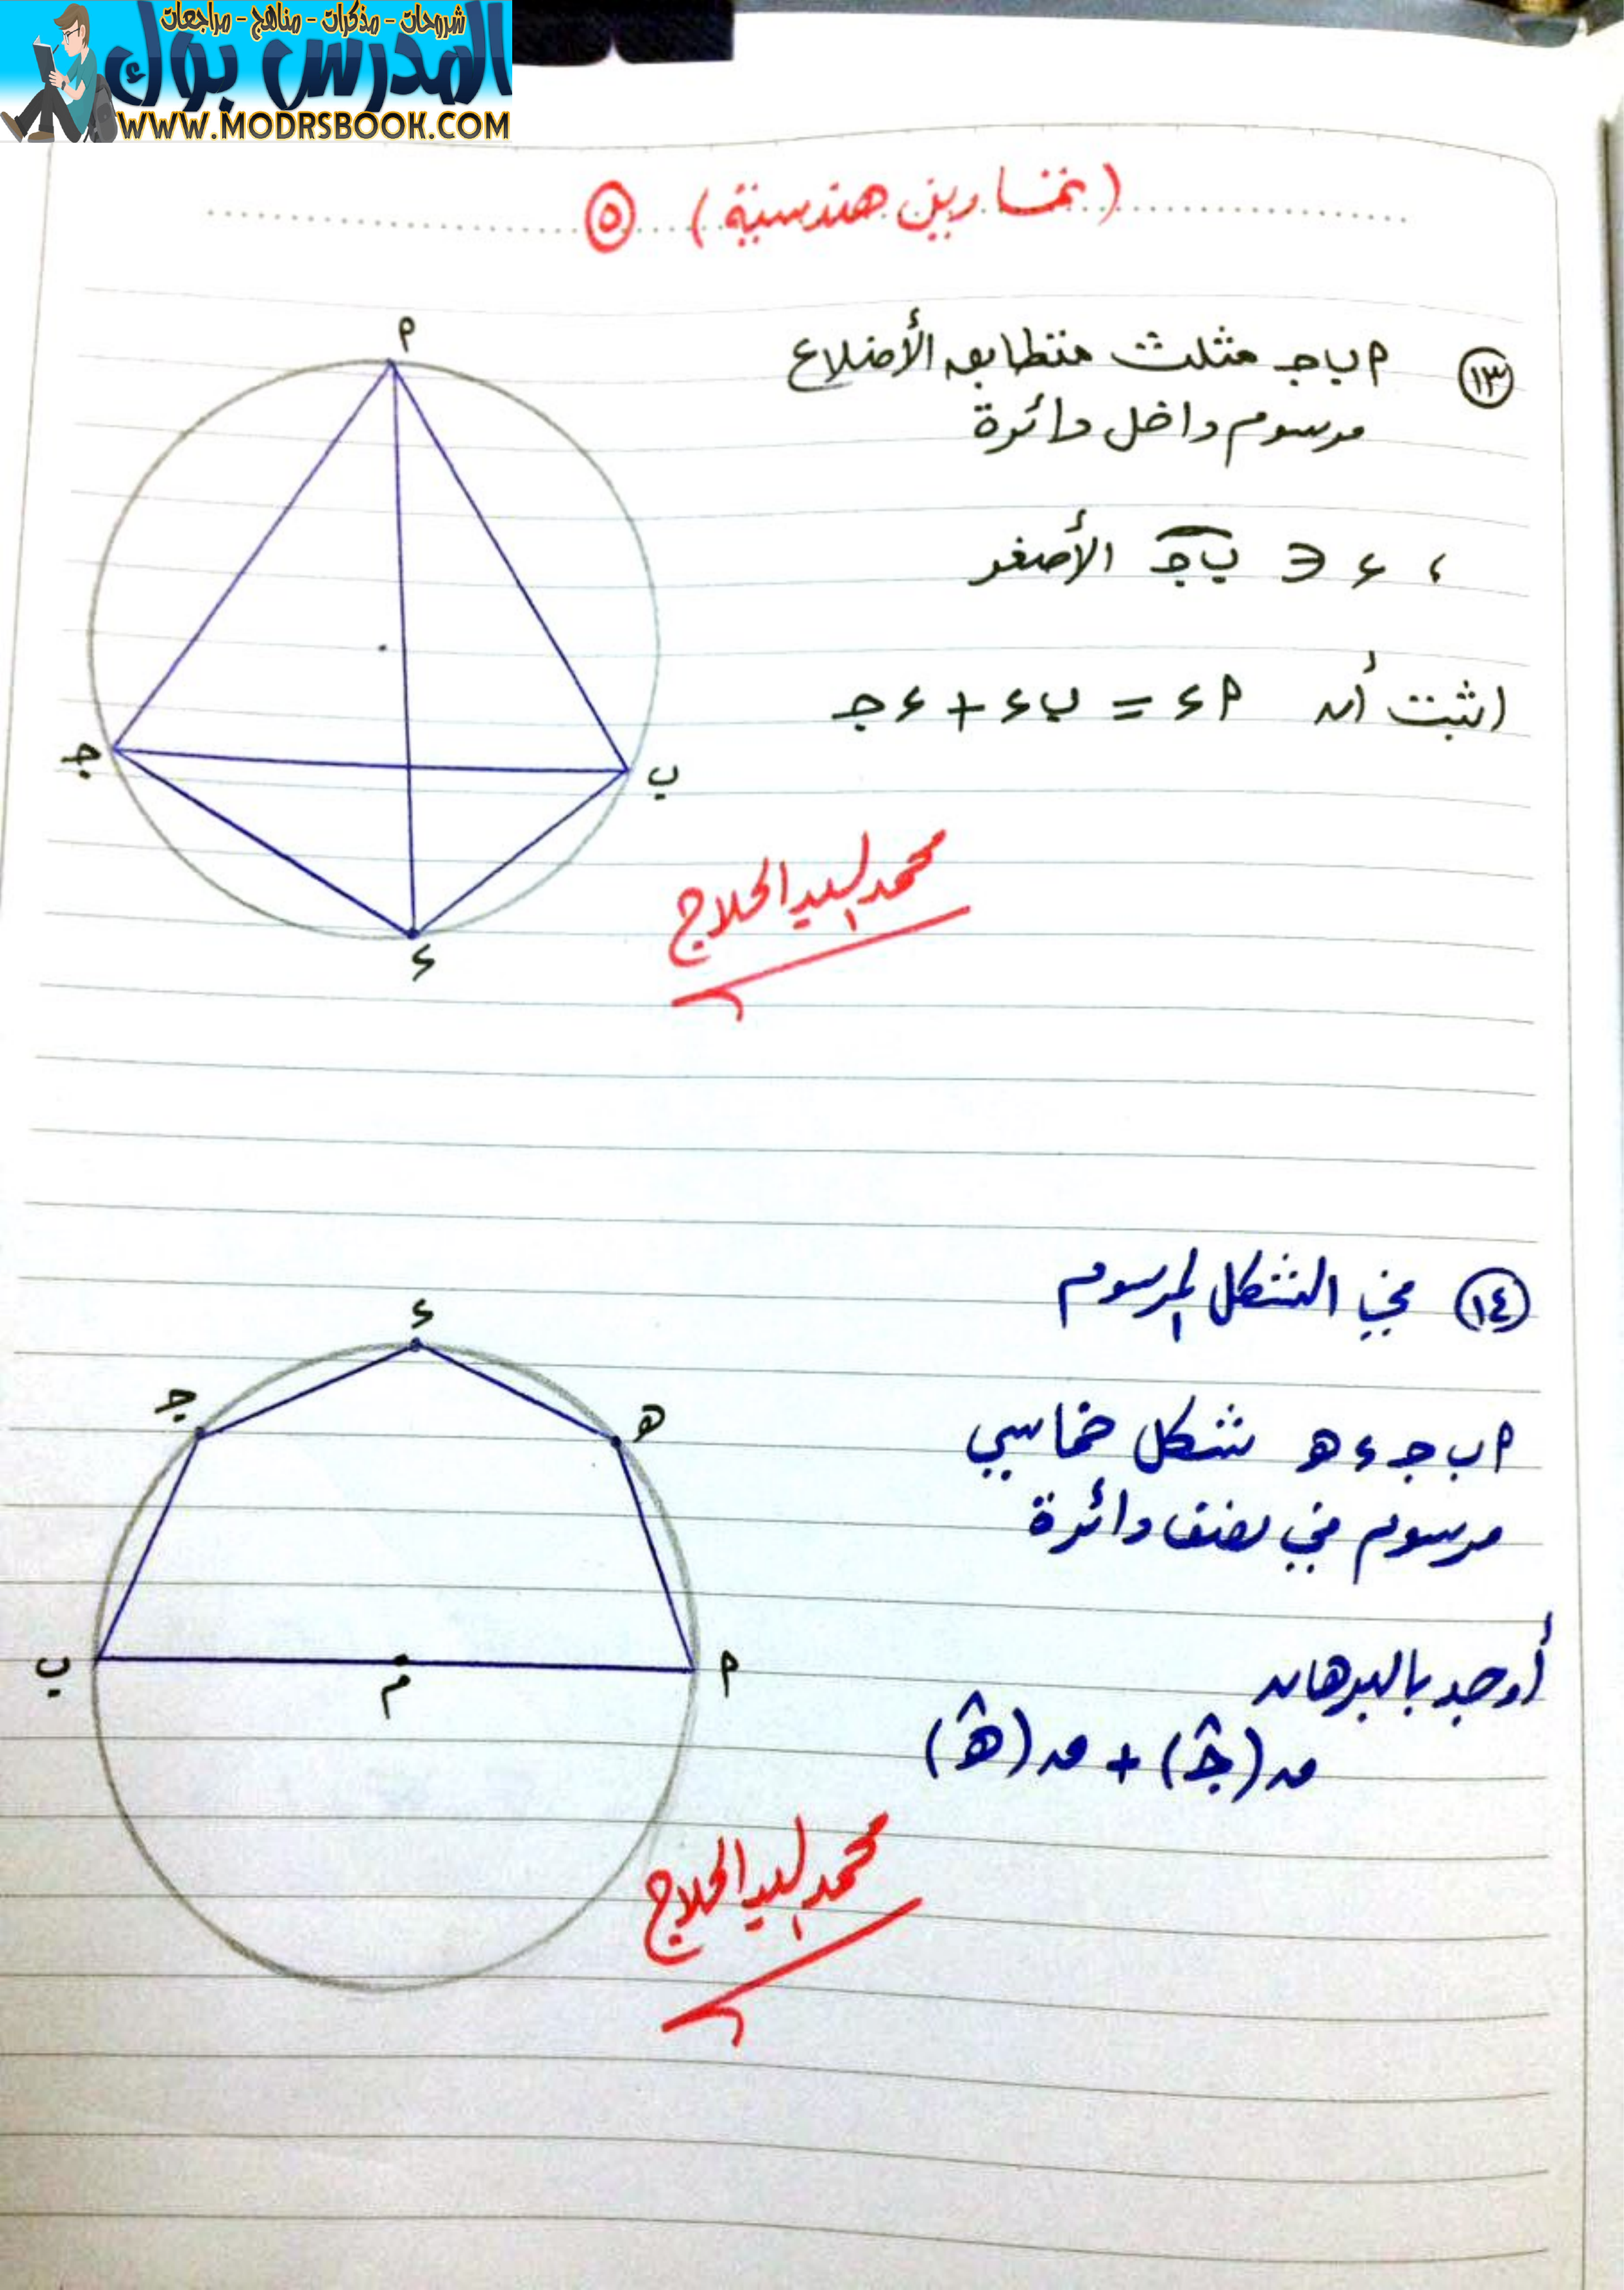 شروحات - مذكرات - مناهج - مراجعات
المدرس بوك
WWW.MODRSBOOK.COM
(تمارين هندسية) ٥
١٣ أ ب جـ مثلث متطابق الأضلاع
مرسوم داخل دائرة
، ء ∈ ب جـ الأصغر
اثبت أن أ ء = ب ء + ء جـ
أ
جـ
ب
ء
محمد السيد الحلاج
١٤ في الشكل المرسوم
أ ب جـ ء هـ شكل خماسي
مرسوم في نصف دائرة
أوجد بالبرهان
ق(جـ^) + ق(هـ^)
ء
جـ
هـ
ب
م
أ
محمد السيد الحلاج